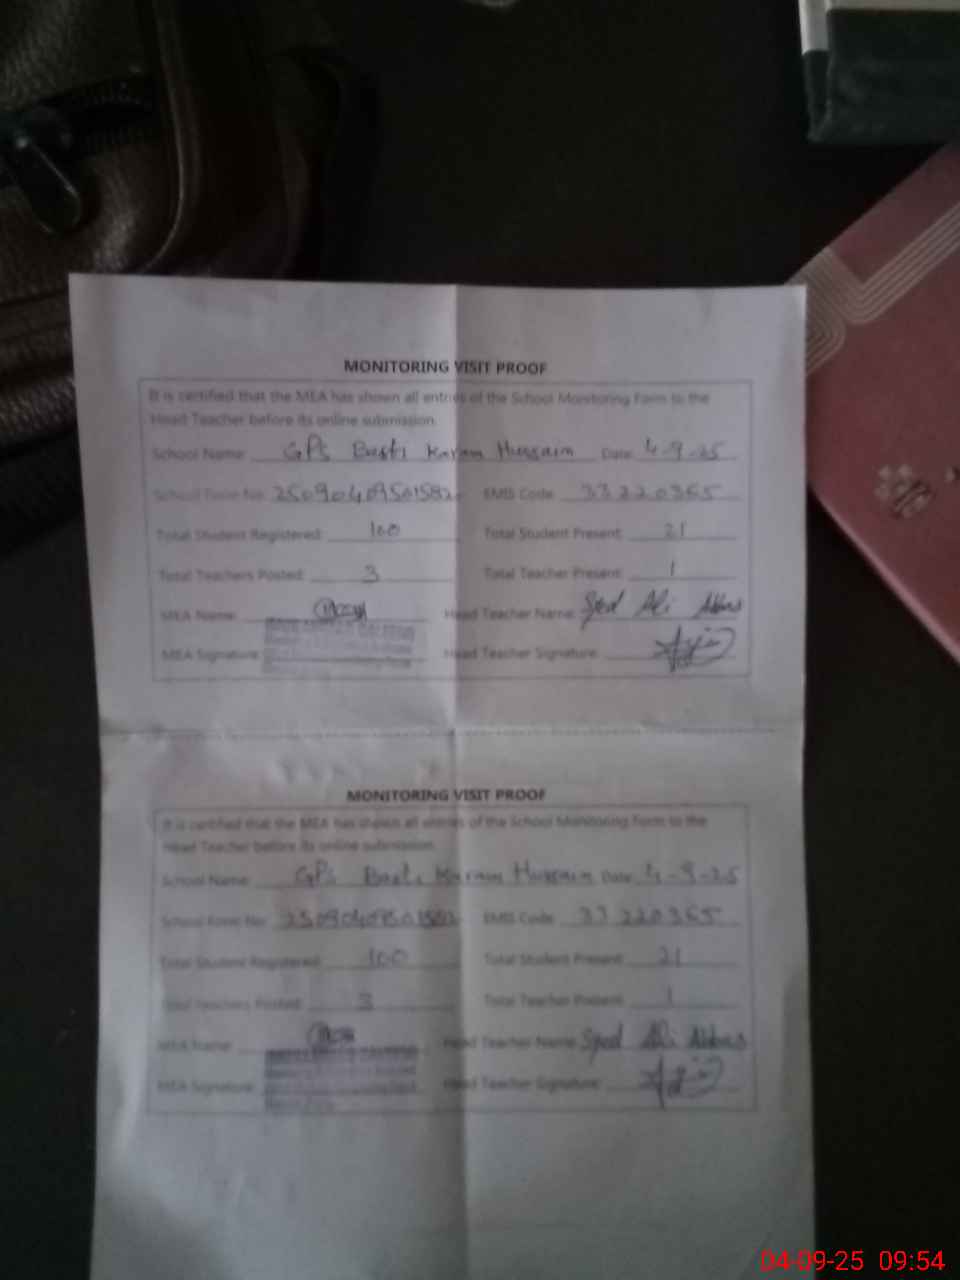 MONITORING VISIT PROOF
It is certified that the MEA has shown all entries of the School Monitoring Form to the
Head Teacher before its online submission.
School Name: GPS Basti Karam Hussain Date: 4-9-25
School Form No: 25090409501582 EMIS Code: 33220365
Total Student Registered: 100 Total Student Present: 21
Total Teachers Posted: 3 Total Teacher Present: 1
MEA Name: Head Teacher Name: Syed Ali Abbas
MEA Signature: Head Teacher Signature:
MONITORING VISIT PROOF
It is certified that the MEA has shown all entries of the School Monitoring Form to the
Head Teacher before its online submission.
School Name: GPS Basti Karam Hussain Date: 4-9-25
School Form No: 25090409501582 EMIS Code: 33220365
Total Student Registered: 100 Total Student Present: 21
Total Teachers Posted: 3 Total Teacher Present: 1
MEA Name: Head Teacher Name: Syed Ali Abbas
MEA Signature: Head Teacher Signature:
04-09-25 09:54